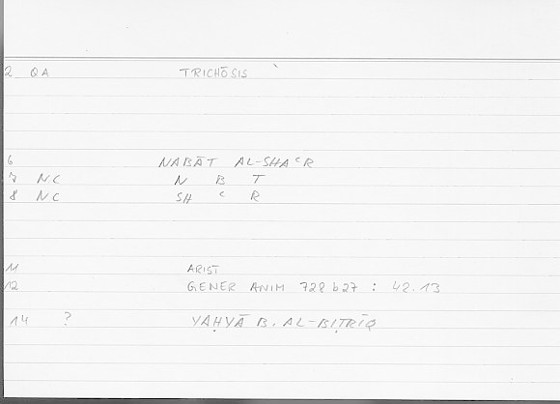 2 QA TRICHŌSIS `
6 NABĀT AL-SHAᶜR
7 NC N B T
8 NC SH ᶜ R
11 ARIST
12 GENER ANIM 728b27 : 42.13
14 ? YAḤYĀ B. AL-BIṬRĪQ